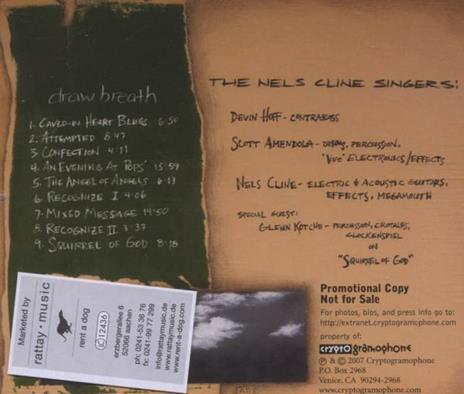 draw breath
1. CAVED-IN HEART BLUES 6:50
2. ATTEMPTED 8:47
3 CONFECTION 4:11
4. AN EVENING AT POPS' 15:59
5. THE ANGEL OF ANGELS 6:13
6 RECOGNIZE I 4:06
7. MIXED MESSAGE 14:50
8 RECOGNIZE II 3:37
9. SQUIRREL OF GOD 8:18
THE NELS CLINE SINGERS:
DEVIN HOFF - CONTRABASS
SCOTT AMENDOLA - DRUMS, PERCUSSION,
ELECTRONICS/EFFECTS
NELS CLINE - ELECTRIC & ACOUSTIC GUITARS,
EFFECTS, MEGAMOUTH
SPECIAL GUEST:
GLENN KOTCHE - PERCUSSION, CROTALES,
GLOCKENSPIEL
ON
"SQUIRREL OF GOD"
Marketed by
rattay·music
rent a dog
LC 12436
erzbergerallee 6
52066 aachen
ph: 0241-53 38 76
fx: 0241-99 77 299
info@rattaymusic.de
www.rattaymusic.de
www.rent-a-dog.com
Promotional Copy
Not for Sale
For photos, bios, and press info go to:
http://extranet.cryptogramophone.com
property of:
cryptogramophone
℗ & © 2007 Cryptogramophone
P.O. Box 2968
Venice, CA 90294-2968
www.cryptogramophone.com